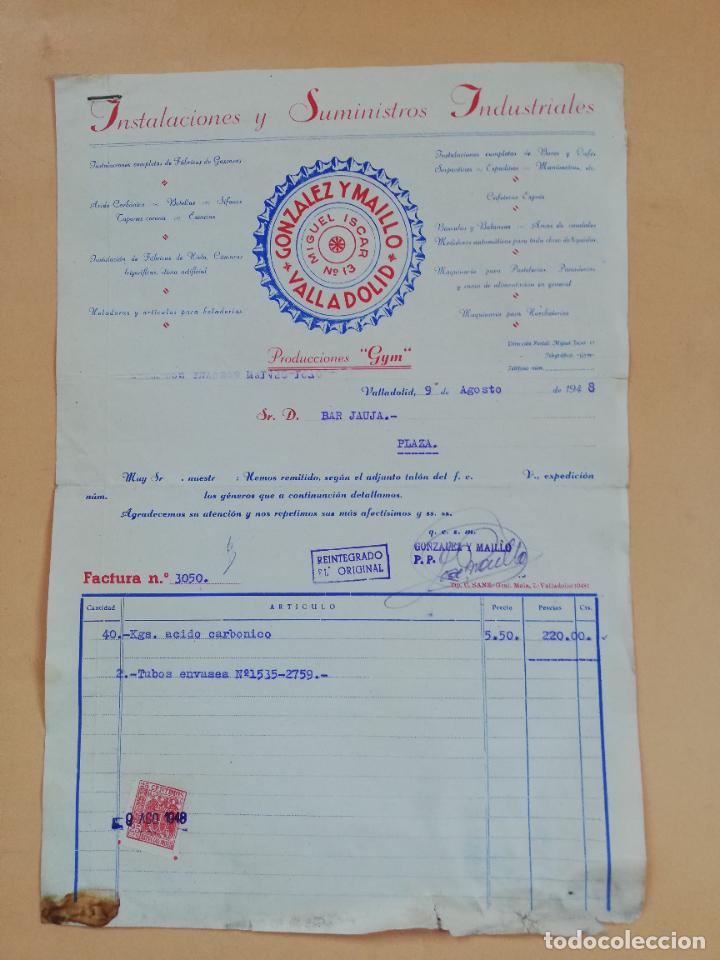 Instalaciones y Suministros Industriales
Instalaciones completas de Fábricas de Gaseosas
Acido Carbónico - Botellas - Sifones
Tapones corona - Esencias
Instalación de Fábricas de Hielo, Cámaras
frigoríficas, clima artificial
Heladoras y artículos para heladerías
GONZALEZ Y MAILLO
MIGUEL ISCAR
Nº 13
VALLADOLID
Instalaciones completas de Bares y Cafés
Cafeteras Exprés
Básculas y Balanzas - Arcas de caudales
Medidores automáticos para toda clase de líquidos
Maquinaria para Pastelerías Panaderías
y ramo de alimentación en general
Maquinaria para Horchaterías
Producciones "Gym"
Dirección Postal: Miguel Iscar 13
Telegráfica: Gym
Teléfono núm.
Valladolid, 9 de Agosto de 1948
Sr. D. BAR JAUJA.-
PLAZA.
Muy Sr. nuestr : Hemos remitido, según el adjunto talón del f. c. V., expedición
núm. los géneros que a continuación detallamos.
Agradecemos su atención y nos repetimos sus más afectísimos y ss. ss.
q. e. s. m.
GONZALEZ Y MAILLO
P. P.
REINTEGRADO
EL ORIGINAL
Factura n.º 3050.
Tip. C. SANZ-Gral. Mola, 7.-Valladolid
Cantidad ARTICULO Precio Pesetas Cts.
40.-Kgs. acido carbonico 5.50. 220.00.
2.-Tubos envases Nº1535-2759.-
9 AGO 1948
todocoleccion.net